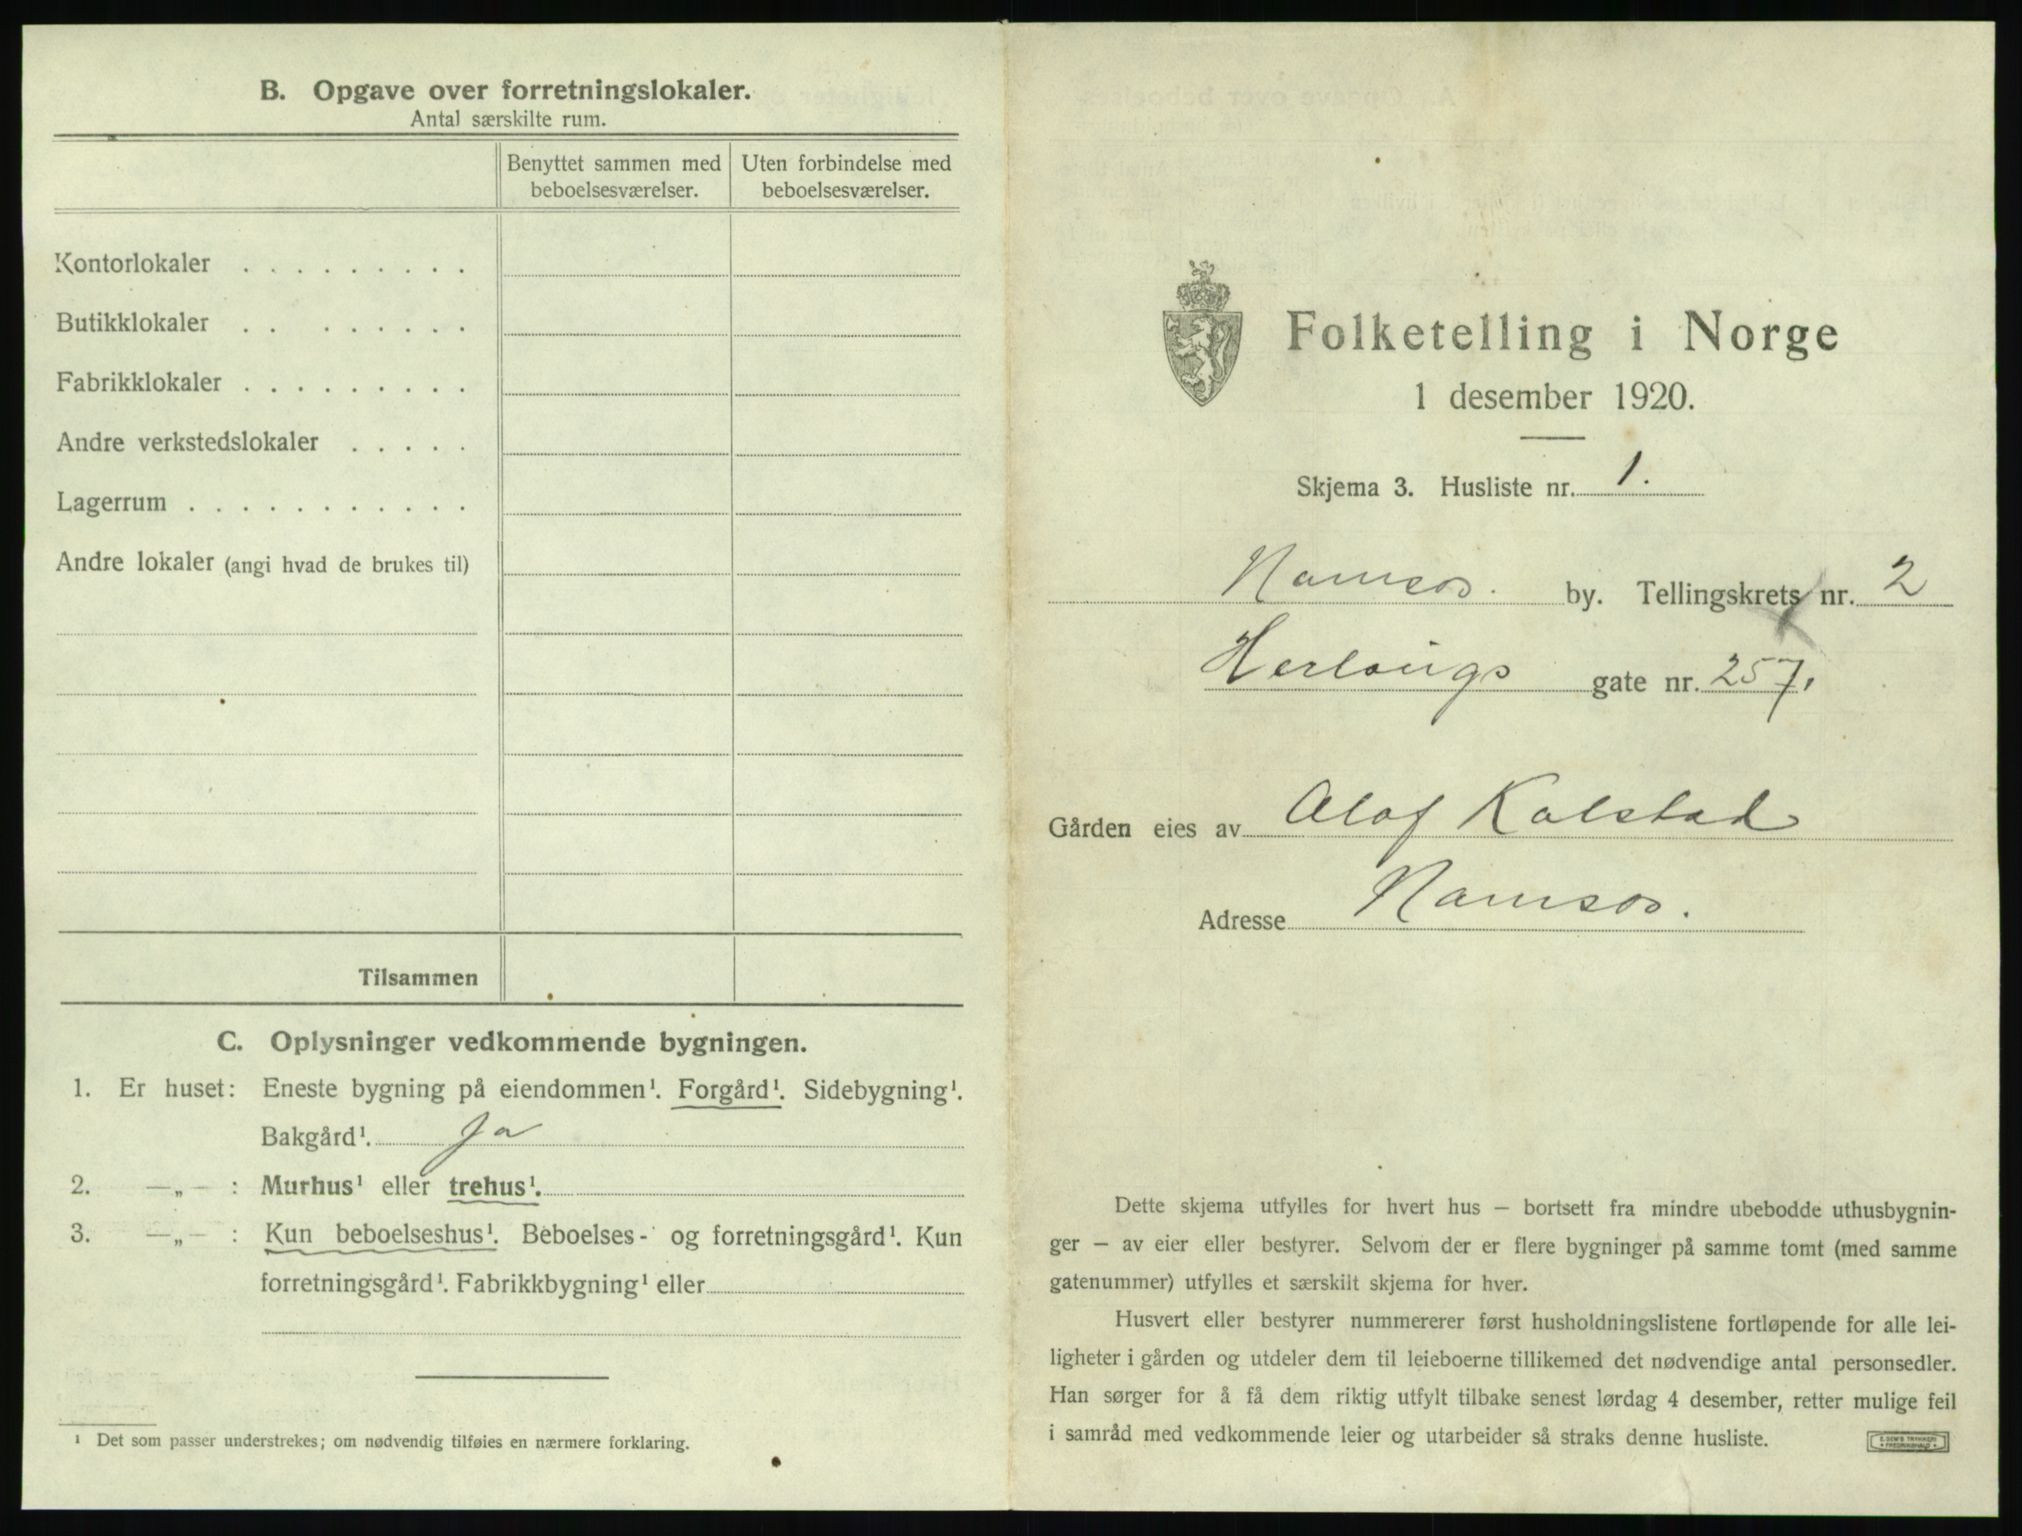 B. Opgave over forretningslokaler.
Antal særskilte rum.
Benyttet sammen med beboelsesværelser.
Uten forbindelse med beboelsesværelser.
Kontorlokaler . . . . . . . . .
Butikklokaler . . . . . . . .
Fabrikklokaler . . . . . . . . .
Andre verkstedslokaler . . . . .
Lagerrum . . . . . . . . . . .
Andre lokaler (angi hvad de brukes til)
Tilsammen
C. Oplysninger vedkommende bygningen.
1. Er huset: Eneste bygning på eiendommen¹. Forgård¹. Sidebygning¹.
Bakgård¹. Ja
2. —„— : Murhus¹ eller trehus¹.
3. —„— : Kun beboelseshus¹. Beboelses- og forretningsgård¹. Kun
forretningsgård¹. Fabrikkbygning¹ eller
¹ Det som passer understrekes; om nødvendig tilføies en nærmere forklaring.
Folketelling i Norge
1 desember 1920.
Skjema 3. Husliste nr. 1.
Namsos. by. Tellingskrets nr. 2
Herlaugs gate nr. 257.
Gården eies av Olof Kolstad
Adresse Namsos.
Dette skjema utfylles for hvert hus — bortsett fra mindre ubebodde uthusbygnin-
ger — av eier eller bestyrer. Selvom der er flere bygninger på samme tomt (med samme
gatenummer) utfylles et særskilt skjema for hver.
Husvert eller bestyrer nummererer først husholdningslistene fortløpende for alle lei-
ligheter i gården og utdeler dem til leieboerne tillikemed det nødvendige antal personsedler.
Han sørger for å få dem riktig utfylt tilbake senest lørdag 4 desember, retter mulige feil
i samråd med vedkommende leier og utarbeider så straks denne husliste.